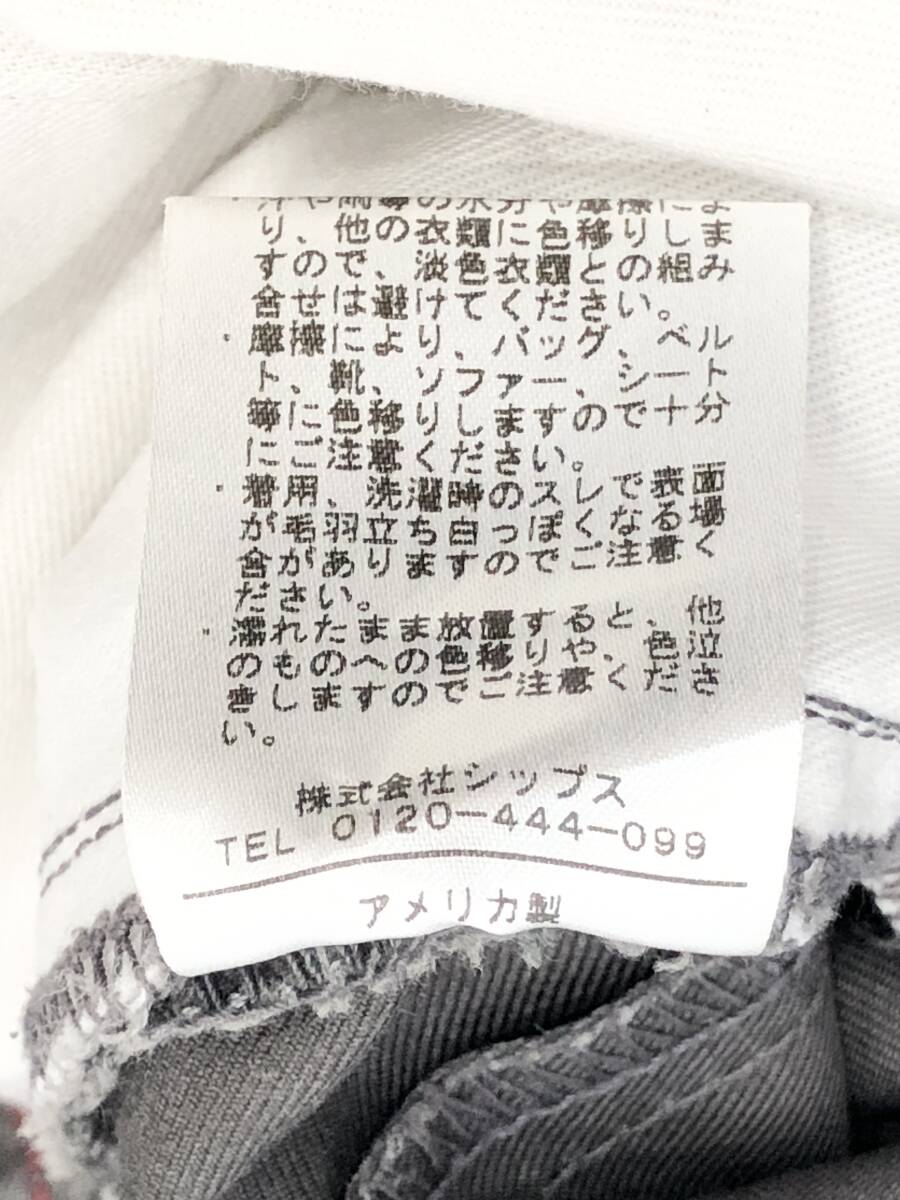 汗や、雨等の水分や摩擦にま
り、他の衣類に色移りしま
すので、淡色衣類との組み
合せは避けてください。
・摩擦により、バッグ、ベル
ト、靴、ソファー、シート
等に色移りしますので十分
にご注意ください。
・着用、洗濯時のスレで表面
が毛羽立ち白っぽくなる場
合があリますのでご注意く
ださい。
・濡れたまま放置すると、他
のものへの色移りや、色泣
きもしますのでご注意くださ
い。
株式会社シップス
TEL 0120-444-099
アメリカ製